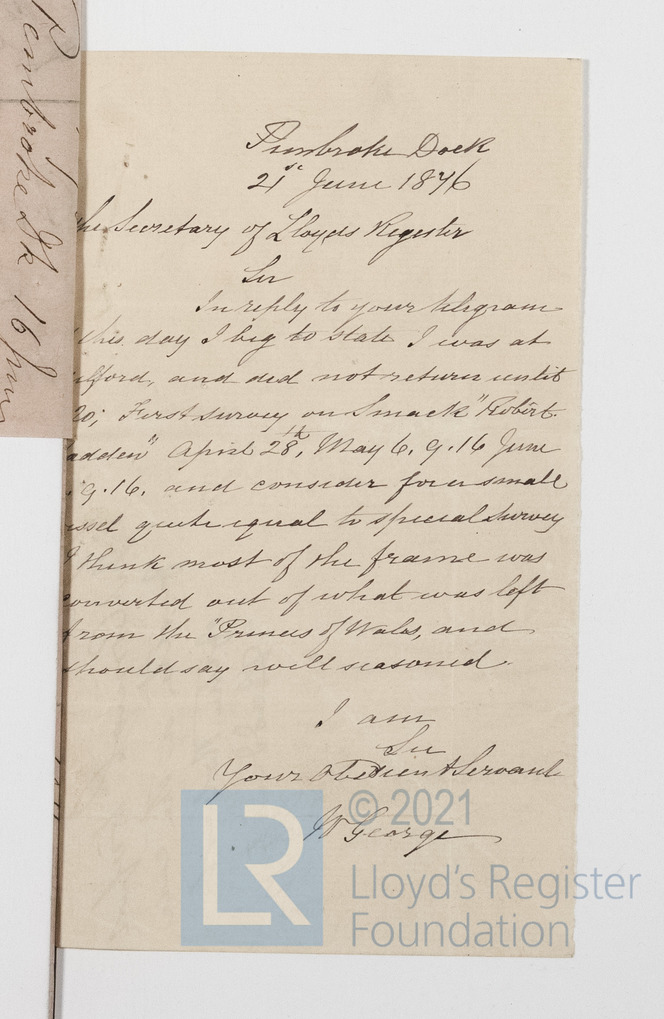 Pembroke Dk 16 June
Pembroke Dock
21st June 1876
the Secretary of Lloyds Register
Sir
In reply to your telegram
this day I beg to state I was at
ilford, and did not return until
20; First survey on Smack "Robert
adden" April 28th, May 6. 9. 16 June
. 9. 16. and consider for a small
essel quite equal to special survey
I think most of the frame was
converted out of what was left
from the "Princes of Wales, and
should say well seasoned.
I am
Sir
Your Obedient Servant
W George
© 2021
LR
Lloyd's Register
Foundation